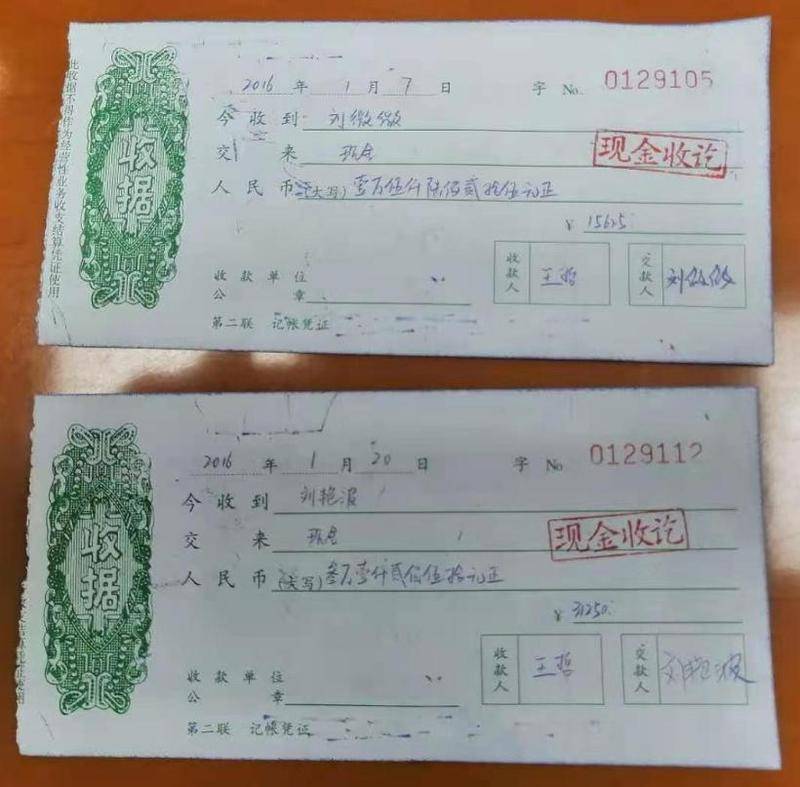 收据
此收据不得作为经营性业务收支结算凭证使用
2016 年 1 月 7 日 字 No. 0129105
今收到 刘微微
交来 现金 现金收讫
人民币(大写) 壹万伍仟陆佰贰拾伍元正
¥ 15625
收款单位
公章
收款人 王哲 交款人 刘微微
第二联 记帐凭证
收据
2016 年 1 月 20 日 字 No 0129112
今收到 刘艳波
交来 现金 现金收讫
人民币(大写) 叁万壹仟贰佰伍拾元正
¥ 31250
收款单位
公章
收款人 王哲 交款人 刘艳波
第二联 记帐凭证